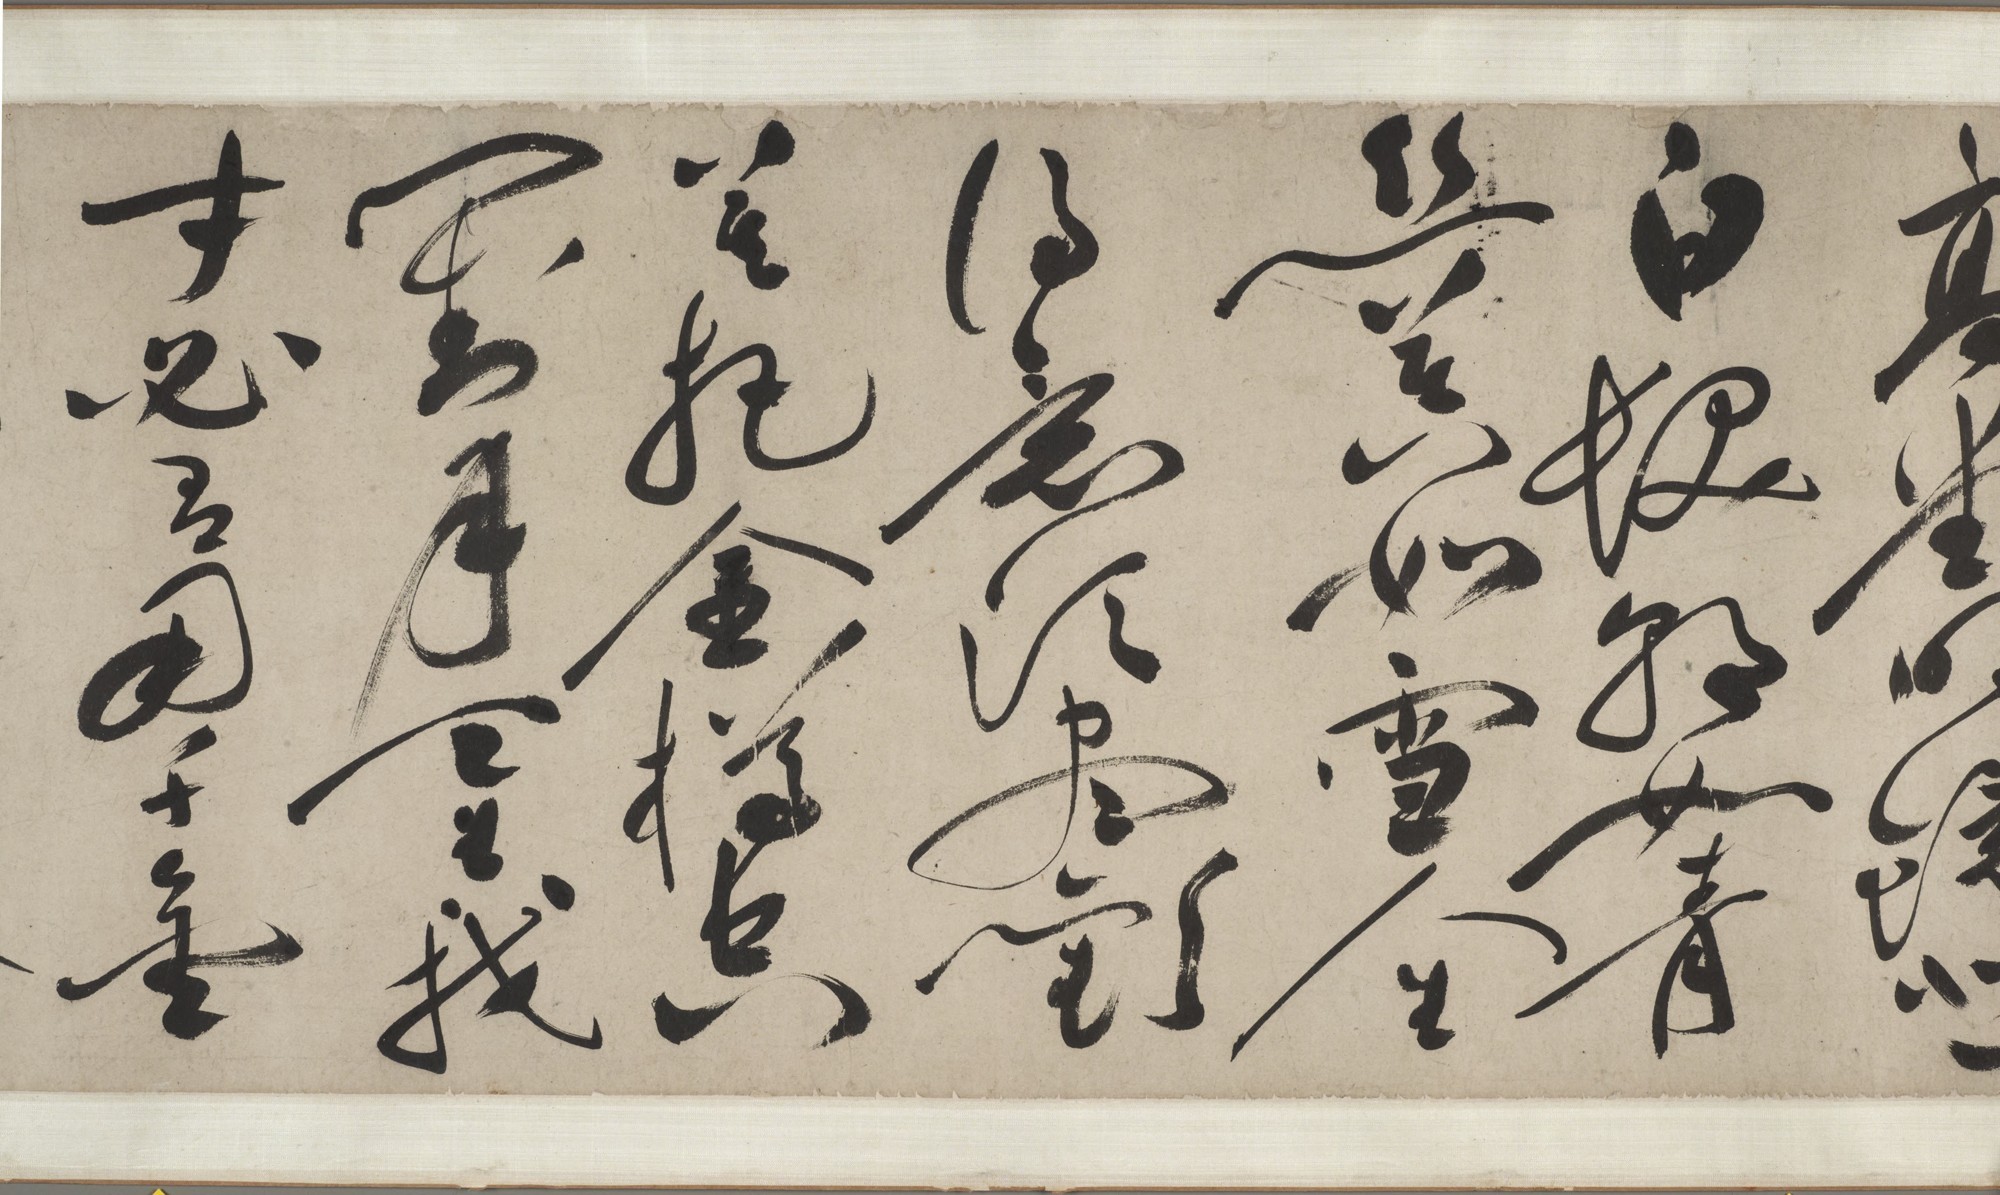 高堂明鏡悲
白髮朝如青
絲暮如雪人生
得意須盡歡
莫把金樽
對月天生我
才必有用千金